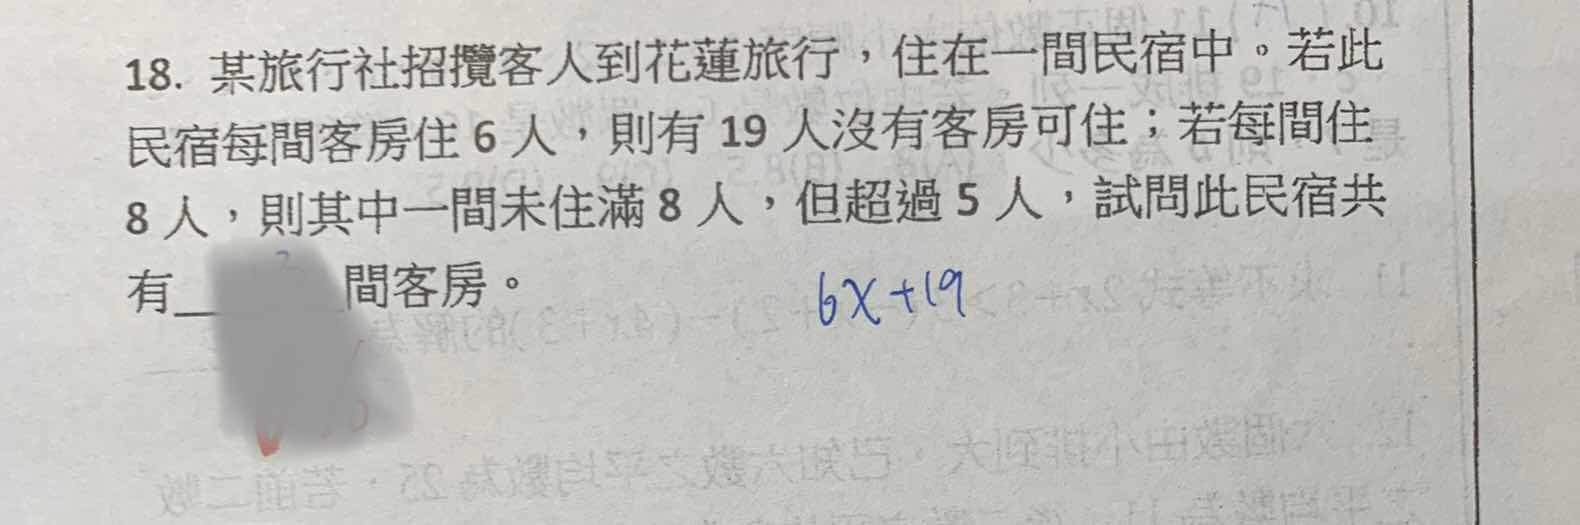 18. 某旅行社招攬客人到花蓮旅行，住在一間民宿中。若此
民宿每間客房住 6 人，則有 19 人沒有客房可住；若每間住
8 人，則其中一間未住滿 8 人，但超過 5 人，試問此民宿共
有 間客房。
6x+19